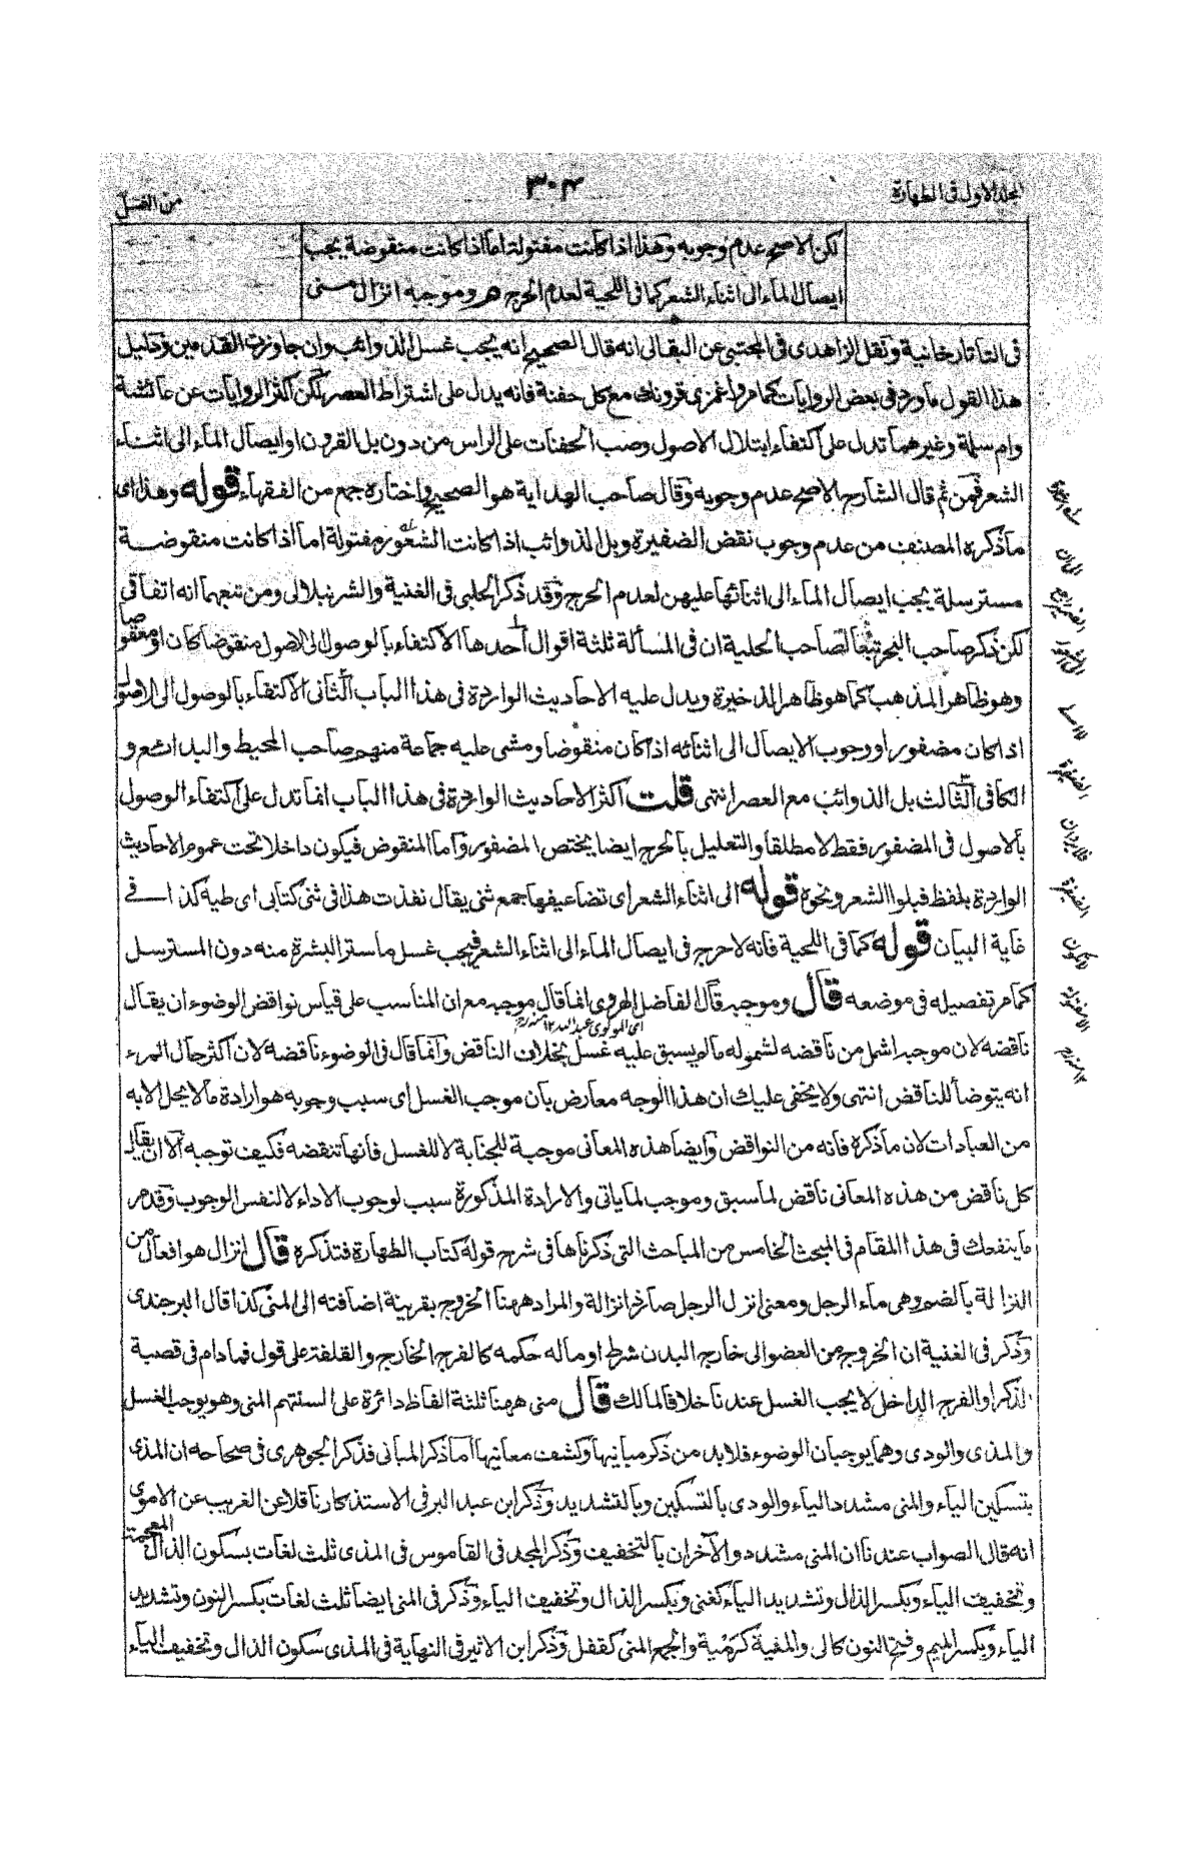 المجلد الاول فى الطهارة
٣٠٤
من الغسل
لكن الاصح عدم وجوبه وهذا اذا كانت مفتولة اما اذا كانت منقوضة يجب
ايصال الماء الى اثناء الشعر كما فى اللحية لعدم الحرج هر وموجبه انزال منى
فى التاتارخانية ونقل الزاهدى فى المجتبى عن البقالى انه قال الصحيح انه يجب غسل الذوائب وان جاوزت القدمين ودليل
هذا القول ما ورد فى بعض الروايات كما مر واغمزى قرونك مع كل حفنة فانه يدل على اشتراط العصر لكن اكثر الروايات عن عائشة
وام سلمة وغيرهما تدل على اكتفاء ابتلال الاصول وصب الحفنات على الراس من دون بل القرون او ايصال الماء الى اثناء
الشعر فمن ثم قال الشارح الاصح عدم وجوبه وقال صاحب الهداية هو الصحيح واختاره جمع من الفقهاء قوله وهذا اى
ما ذكره المصنف من عدم وجوب نقض الضفيرة وبل الذوائب اذا كانت الشعور مفتولة اما اذا كانت منقوضة
مسترسلة يجب ايصال الماء الى اثنائها عليهن لعدم الحرج وقد ذكر الحلبى فى الغنية والشرنبلالى ومن تبعهما انه اتفاقى
لكن ذكر صاحب البحر تبعا لصاحب الحلية ان فى المسألة ثلثة اقوال احدها الاكتفاء بالوصول الى الاصول منقوضا كان او معقوصا
وهو ظاهر المذهب كما هو ظاهر الذخيرة ويدل عليه الاحاديث الواردة فى هذا الباب الثانى الاكتفاء بالوصول الى الاصول
اذا كان مضفورا ووجوب الايصال الى اثنائه اذا كان منقوضا ومشى عليه جماعة منهم صاحب المحيط والبدائع و
الكافى الثالث بل الذوائب مع العصر انتهى قلت اكثر الاحاديث الواردة فى هذا الباب انما تدل على اكتفاء الوصول
بالاصول فى المضفور فقط لا مطلقا والتعليل بالحرج ايضا يختص المضفور واما المنقوض فيكون داخلا تحت عموم الاحاديث
الواردة بلفظ فبلوا الشعر ونحوه قوله الى اثناء الشعر اى تضاعيفها جمع ثنى يقال نفذت هذا فى ثنى كتابى اى طيه كذا فى
غاية البيان قوله كما فى اللحية فانه لا حرج فى ايصال الماء الى اثناء الشعر فيجب غسل ما ستر البشرة منه دون المسترسل
كما مر تفصيله فى موضعه قال وموجبه قال الفاضل الهروى انما قال موجبه مع ان المناسب على قياس نواقض الوضوء ان يقال
ناقضه لان موجبه اشمل من ناقضه لشموله ما لم يسبق عليه غسل بخلاف الناقض وانما قال فى الوضوء ناقضه لان اكثر حال المرء
انه يتوضأ للناقض انتهى ولا يخفى عليك ان هذا الوجه معارض بان موجب الغسل اى سبب وجوبه هو ارادة ما لا يحل الا به
من العبادات لان ما ذكره فانه من النواقض وايضا هذه المعانى موجبة للجنابة لا للغسل فانها تنقضه فكيف توجبه الا ان يقال
كل ناقض من هذه المعانى ناقض لما سبق وموجب لما ياتى والارادة المذكورة سبب لوجوب الاداء لا لنفس الوجوب وقد مر
ما ينفعك فى هذا المقام فى المبحث الخامس من المباحث التى ذكرناها فى شرح قوله كتاب الطهارة فتذكره قال انزال هو افعال من
النزالة بالضم وهى ماء الرجل ومعنى انزل الرجل صار ذا نزالة والمراد ههنا الخروج بقرينة اضافته الى المنى كذا قال البرجندى
وذكر فى الغنية ان الخروج من العضو الى خارج البدن شرط او ماله حكمه كالفرج الخارج والقلفة على قول فما دام فى قصبة
الذكر او الفرج الداخل لا يجب الغسل عندنا خلافا لمالك قال منى ههنا ثلثة الفاظ دائرة على السنتهم المنى وهو يوجب الغسل
والمذى والودى وهما يوجبان الوضوء فلا بد من ذكر مبانيها وكشف معانيها اما ذكر المبانى فذكر الجوهرى فى صحاحه ان المذى
بتسكين الياء والمنى مشدد الياء والودى بالتسكين وبالتشديد وذكر ابن عبد البر فى الاستذكار ناقلا عن الغريب عن الاموى
انه قال الصواب عندنا ان المنى مشدد والآخران بالتخفيف وذكر المجد فى القاموس فى المذى ثلث لغات بسكون الذال المعجمة
وتخفيف الياء وبكسر الذال وتشديد الياء كغنى وبكسر الذال وتخفيف الياء وذكر فى المنى ايضا ثلث لغات بكسر النون وتشديد
الياء وبكسر الميم وفتح النون كالى والمنية كرمية والجمع المنى كقفل وذكر ابن الاثير فى النهاية فى المذى سكون الذال وتخفيف الياء